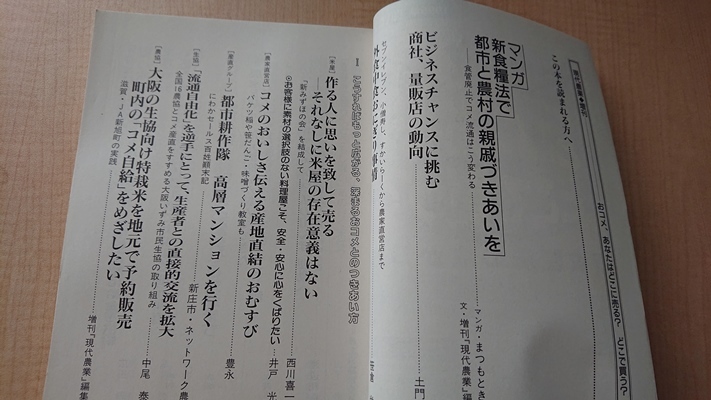 現代農業◆増刊
おコメ、あなたはどこに売る? どこで買う?
この本を読まれる方へ
マンガ
新食糧法で
都市と農村の親戚づきあいを
食管廃止でコメ流通はこう変わる
マンガ・まつもとき
文・増刊『現代農業』編
ビジネスチャンスに挑む
商社、量販店の動向
土門
セブンイレブン、小僧寿し、すかいらーくから農家直営店まで
外食中食おにぎり事情
I こうすればもっと広がる、深まるおコメとのつきあい方
[米屋]
作る人に思いを致して売る
それなしに米屋の存在意義はない
「新みずほの会」を結成して
西川喜一
◎お客様に素材の選択肢のない料理屋こそ、安全・安心に心をくばりたい
井戸
[農家直営店]
コメのおいしさ伝える産地直結のおむすび
バケツ稲や笹だんご・味噌づくり教室も
豊永
[産直グループ]
都市耕作隊 高層マンションを行く
にわかセールス百姓顛末記
新庄市・ネットワーク農
[生協]
「流通自由化」を逆手にとって、生産者との直接的交流を拡大
全国16農協とコメ産直をすすめる大阪いずみ市民生協の取り組み
中尾 泰
[農協]
大阪の生協向け特栽米を地元で予約販売
町内の「コメ自給」をめざしたい
滋賀・JA新旭町の実践
増刊『現代農業』編集